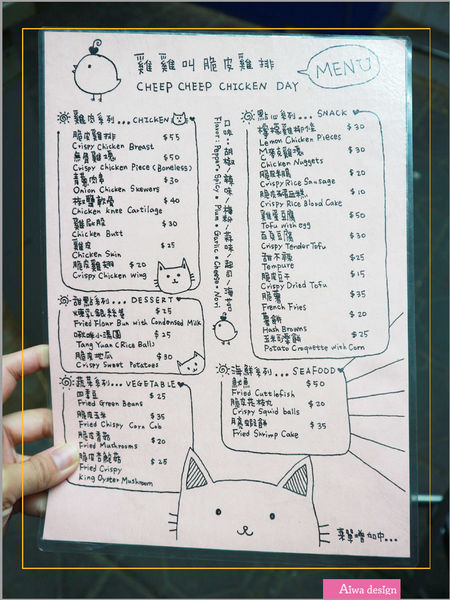 雞雞叫脆皮雞排
CHEEP CHEEP CHICKEN DAY
MENU
雞肉系列... CHICKEN
脆皮雞排 $55
Crispy Chicken Breast
無骨雞塊 $50
Crispy Chicken Piece (Boneless)
青蔥肉串 $30
Onion Chicken Skewers
椒鹽軟骨 $40
Chicken Knee Cartilage
雞屁股 $30
Chicken Butt
雞皮 $25
Chicken Skin
脆皮雞翅 $20
Crispy Chicken Wing
甜點系列... DESSERT
煉乳銀絲卷 $25
Fried Flour Bun with Condensed Milk
啾咪小湯圓 $25
Tang Yuan (Rice Ball)
脆皮地瓜 $30
Crispy Sweet Potatoes
蔬菜系列... VEGETABLE
四季豆 $25
Fried Green Beans
脆皮玉米 $35
Fried Chispy Corn Cob
脆皮香菇 $20
Fried Mushrooms
脆皮杏鮑菇 $25
Fried Crispy
King Oyster Mushroom
口味:胡椒/辣味/梅粉/蒜味/起司/海苔
Flavor: Pepper • Spicy • Plum • Garlic • Cheese • Nori
點心系列... SNACK
檸檬雞柳條 $30
Lemon Chicken Pieces
M麥克雞塊 $30
Chicken Nuggets
$20
Crispy Rice Sausage
$10
Crispy Rice Blood Cake
雞蛋豆腐 $50
Tofu with egg
百頁豆腐 $30
Crispy Tender Tofu
甜不辣 $25
Tempura
脆皮豆干 $15
Crispy Dried Tofu
脆薯 $35
French Fries
薯餅 $20
Hash Browns
玉米可樂餅 $25
Potato Croquette with Corn
海鮮系列... SEAFOOD
魷魚 $50
Fried Cuttlefish
脆皮花枝丸 $20
Crispy Squid balls
月亮蝦餅 $35
Fried Shrimp Cake
菜單增加中...
Aiwa design